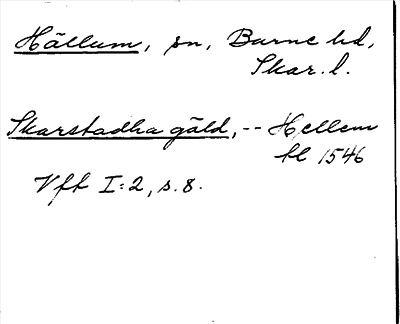 Hällum, sn, Barne hd,
Skar. l.
Skarstadha gäld, -- Hellem
kl 1546
Vft I:2, s. 8.